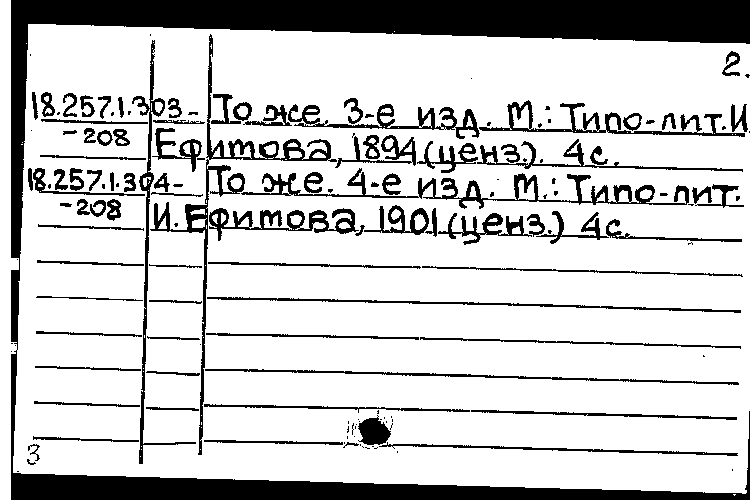 2.
18.257.1.303- То же. 3-е изд. М.: Типо-лит. И.
-208 Ефимова, 1894 (ценз.). 4с.
18.257.1.304- То же. 4-е изд. М.: Типо-лит.
-208 И. Ефимова, 1901 (ценз.) 4с.
3